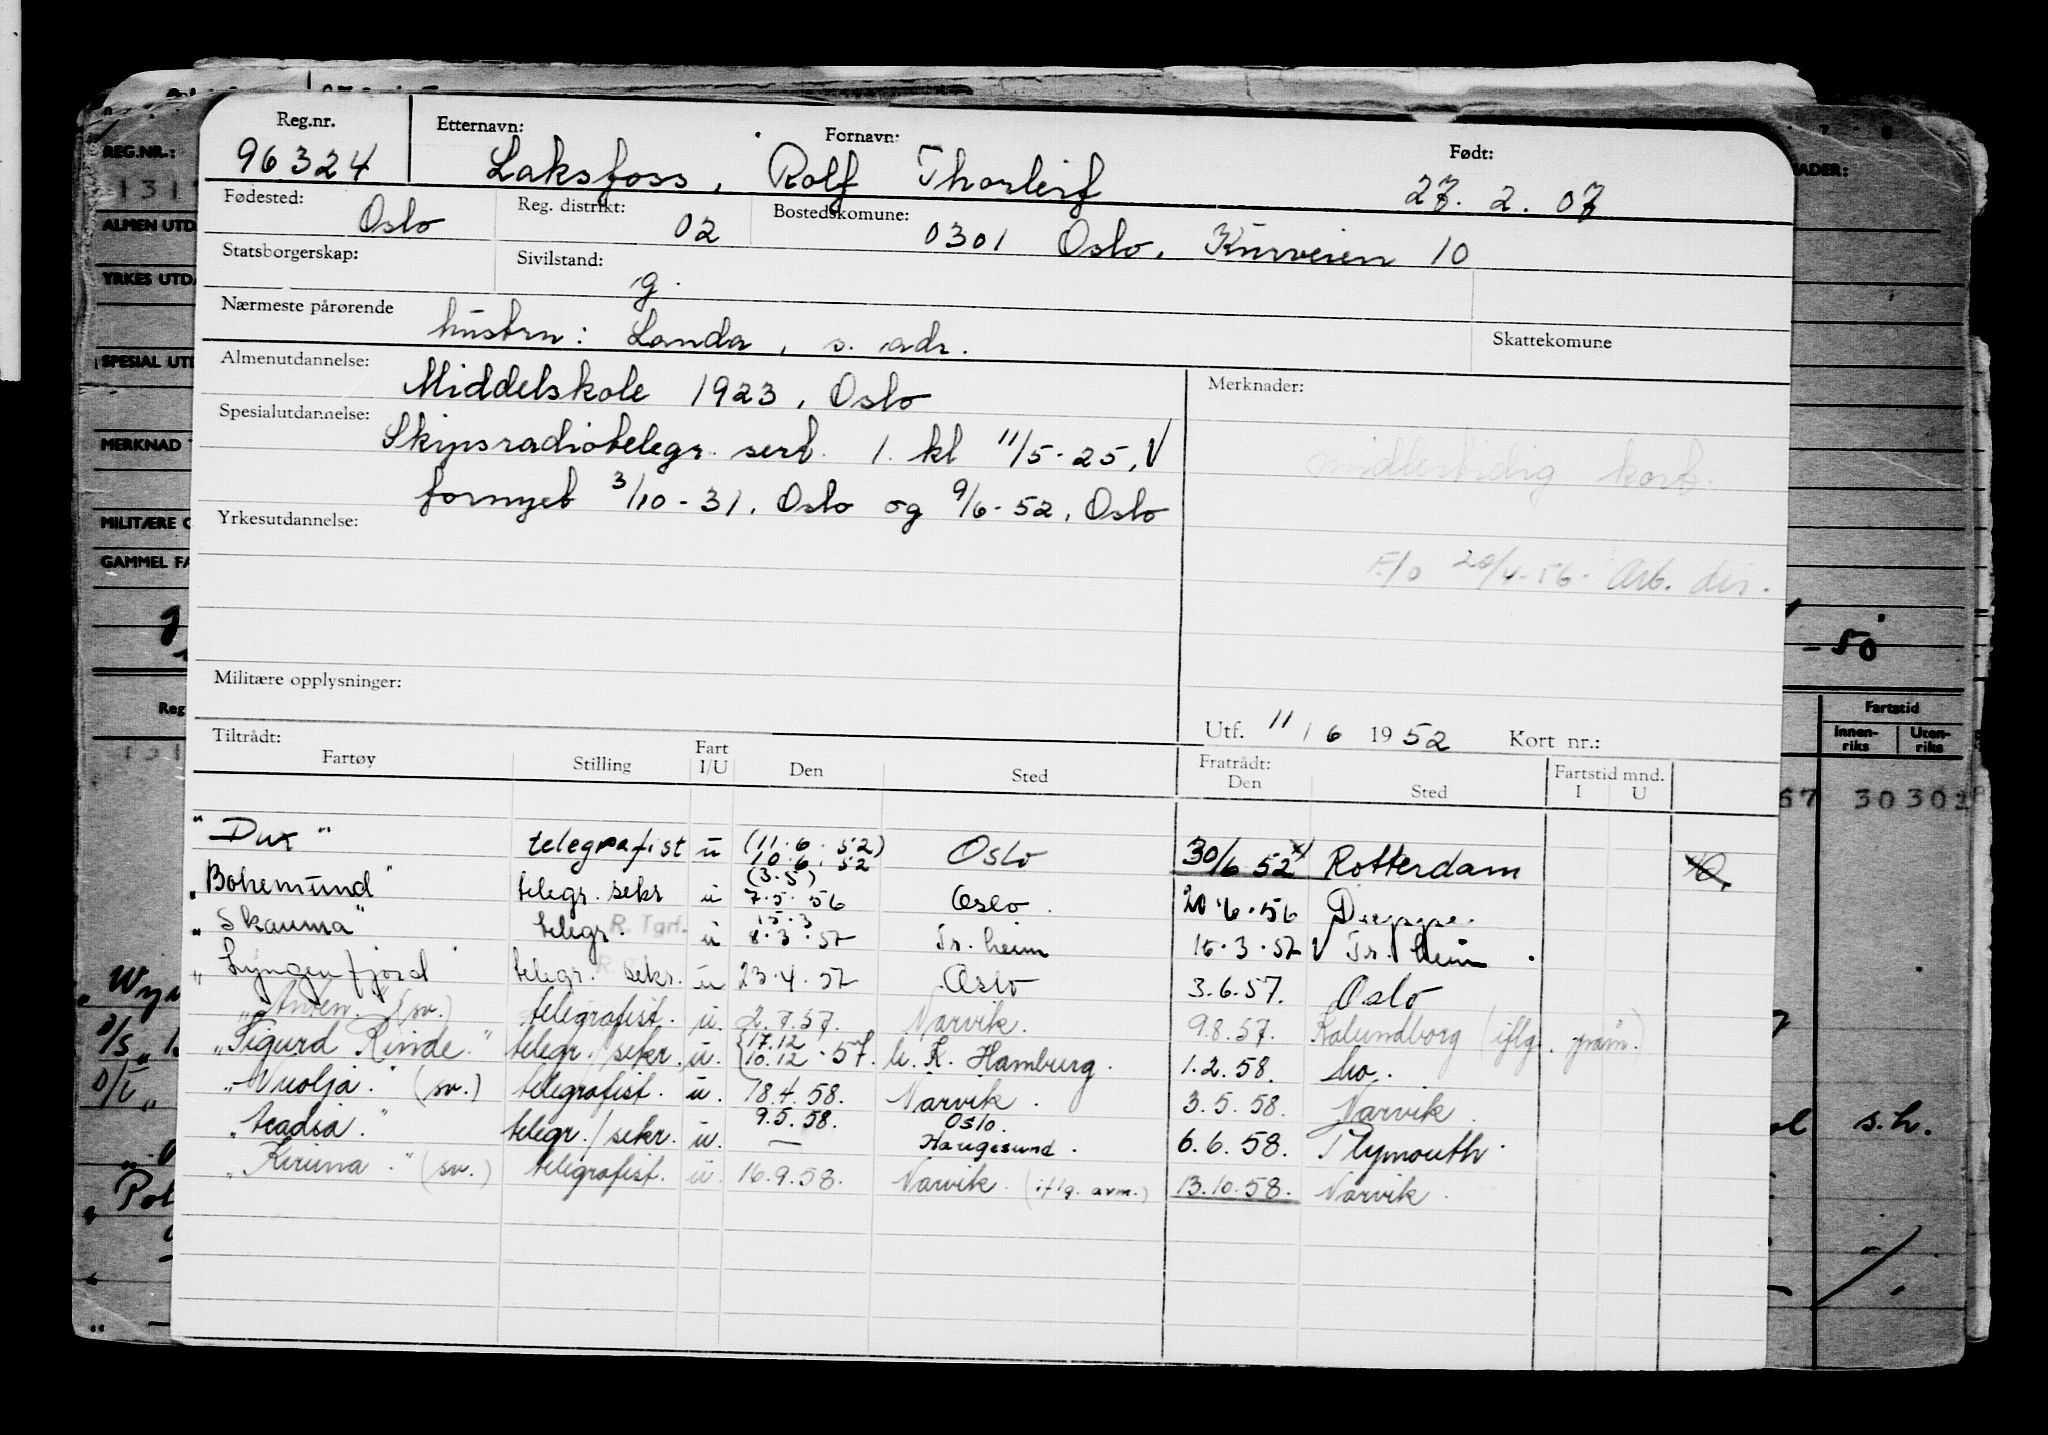 Reg.nr. Etternavn: Fornavn: Født:
96324 Laksfoss, Rolf Thorleif 27. 2. 07
Fødested: Oslo Reg. distrikt: 02 Bostedskomune: 0301 Oslo.
Statsborgerskap: Sivilstand: g. 10
Nærmeste pårørende hustru: Landa, s. adr. Skattekomune
Almenutdannelse: Middelskole 1923, Oslo Merknader:
Spesialutdannelse: Skipsradiotelegr. sert. 1. kl 11/5-25, V
midlertidig kort.
fornyet 3/10-31, Oslo og 9/6-52, Oslo
Yrkesutdannelse:
F/o 20/4-56- Arb. dir.
Militære opplysninger:
Utf. 11/6 1952 Kort nr.:
Tiltrådt: Fratrådt:
Fartøy Stilling Fart I/U Den Sted Den Sted Fartstid mnd. I U
"Dux" telegrafist u (11.6.52) 10.6.52 Oslo 30/6 52 Rotterdam
"Bohemund" telegr. sekr u (3.5) 7.5.56 Oslo. 20.6.56 Dieppe.
"Skauma" telegr. R. Tart. u 15.3 8.3.57 Tr.heim 15.3.57 V Tr.heim.
"Lyngenfjord telegr. sekr. u 23.4.57 Oslo 3.6.57. Oslo
(sv.) telegrafist. u. 2.7.57. Narvik. 9.8.57. Kalundborg (iflg. mam.)
"Sigurd Rinde." telegr./sekr. u. {17.12 10.12.57. Hamburg. 1.2.58. do.
"Vuolja." (sv.) telegrafist. u. 18.4.58. Narvik. 3.5.58. Narvik.
"Acadia." telegr./sekr. u. 9.5.58. — Oslo. Haugesund. 6.6.58. Plymouth.
"Kiruna." (sv.) telegrafist. u. 16.9.58. Narvik. (iflg. avm.) 13.10.58. Narvik.
REG.NR.:
131
ALMEN UTD
YRKES UTDA
SPESIAL UTD
MERKNAD T
MILITÆRE O
GAMMEL FA
Reg
131
NADER:
-50
Fartstid
Innen-riks Uten-riks
67 30 302
s.h.